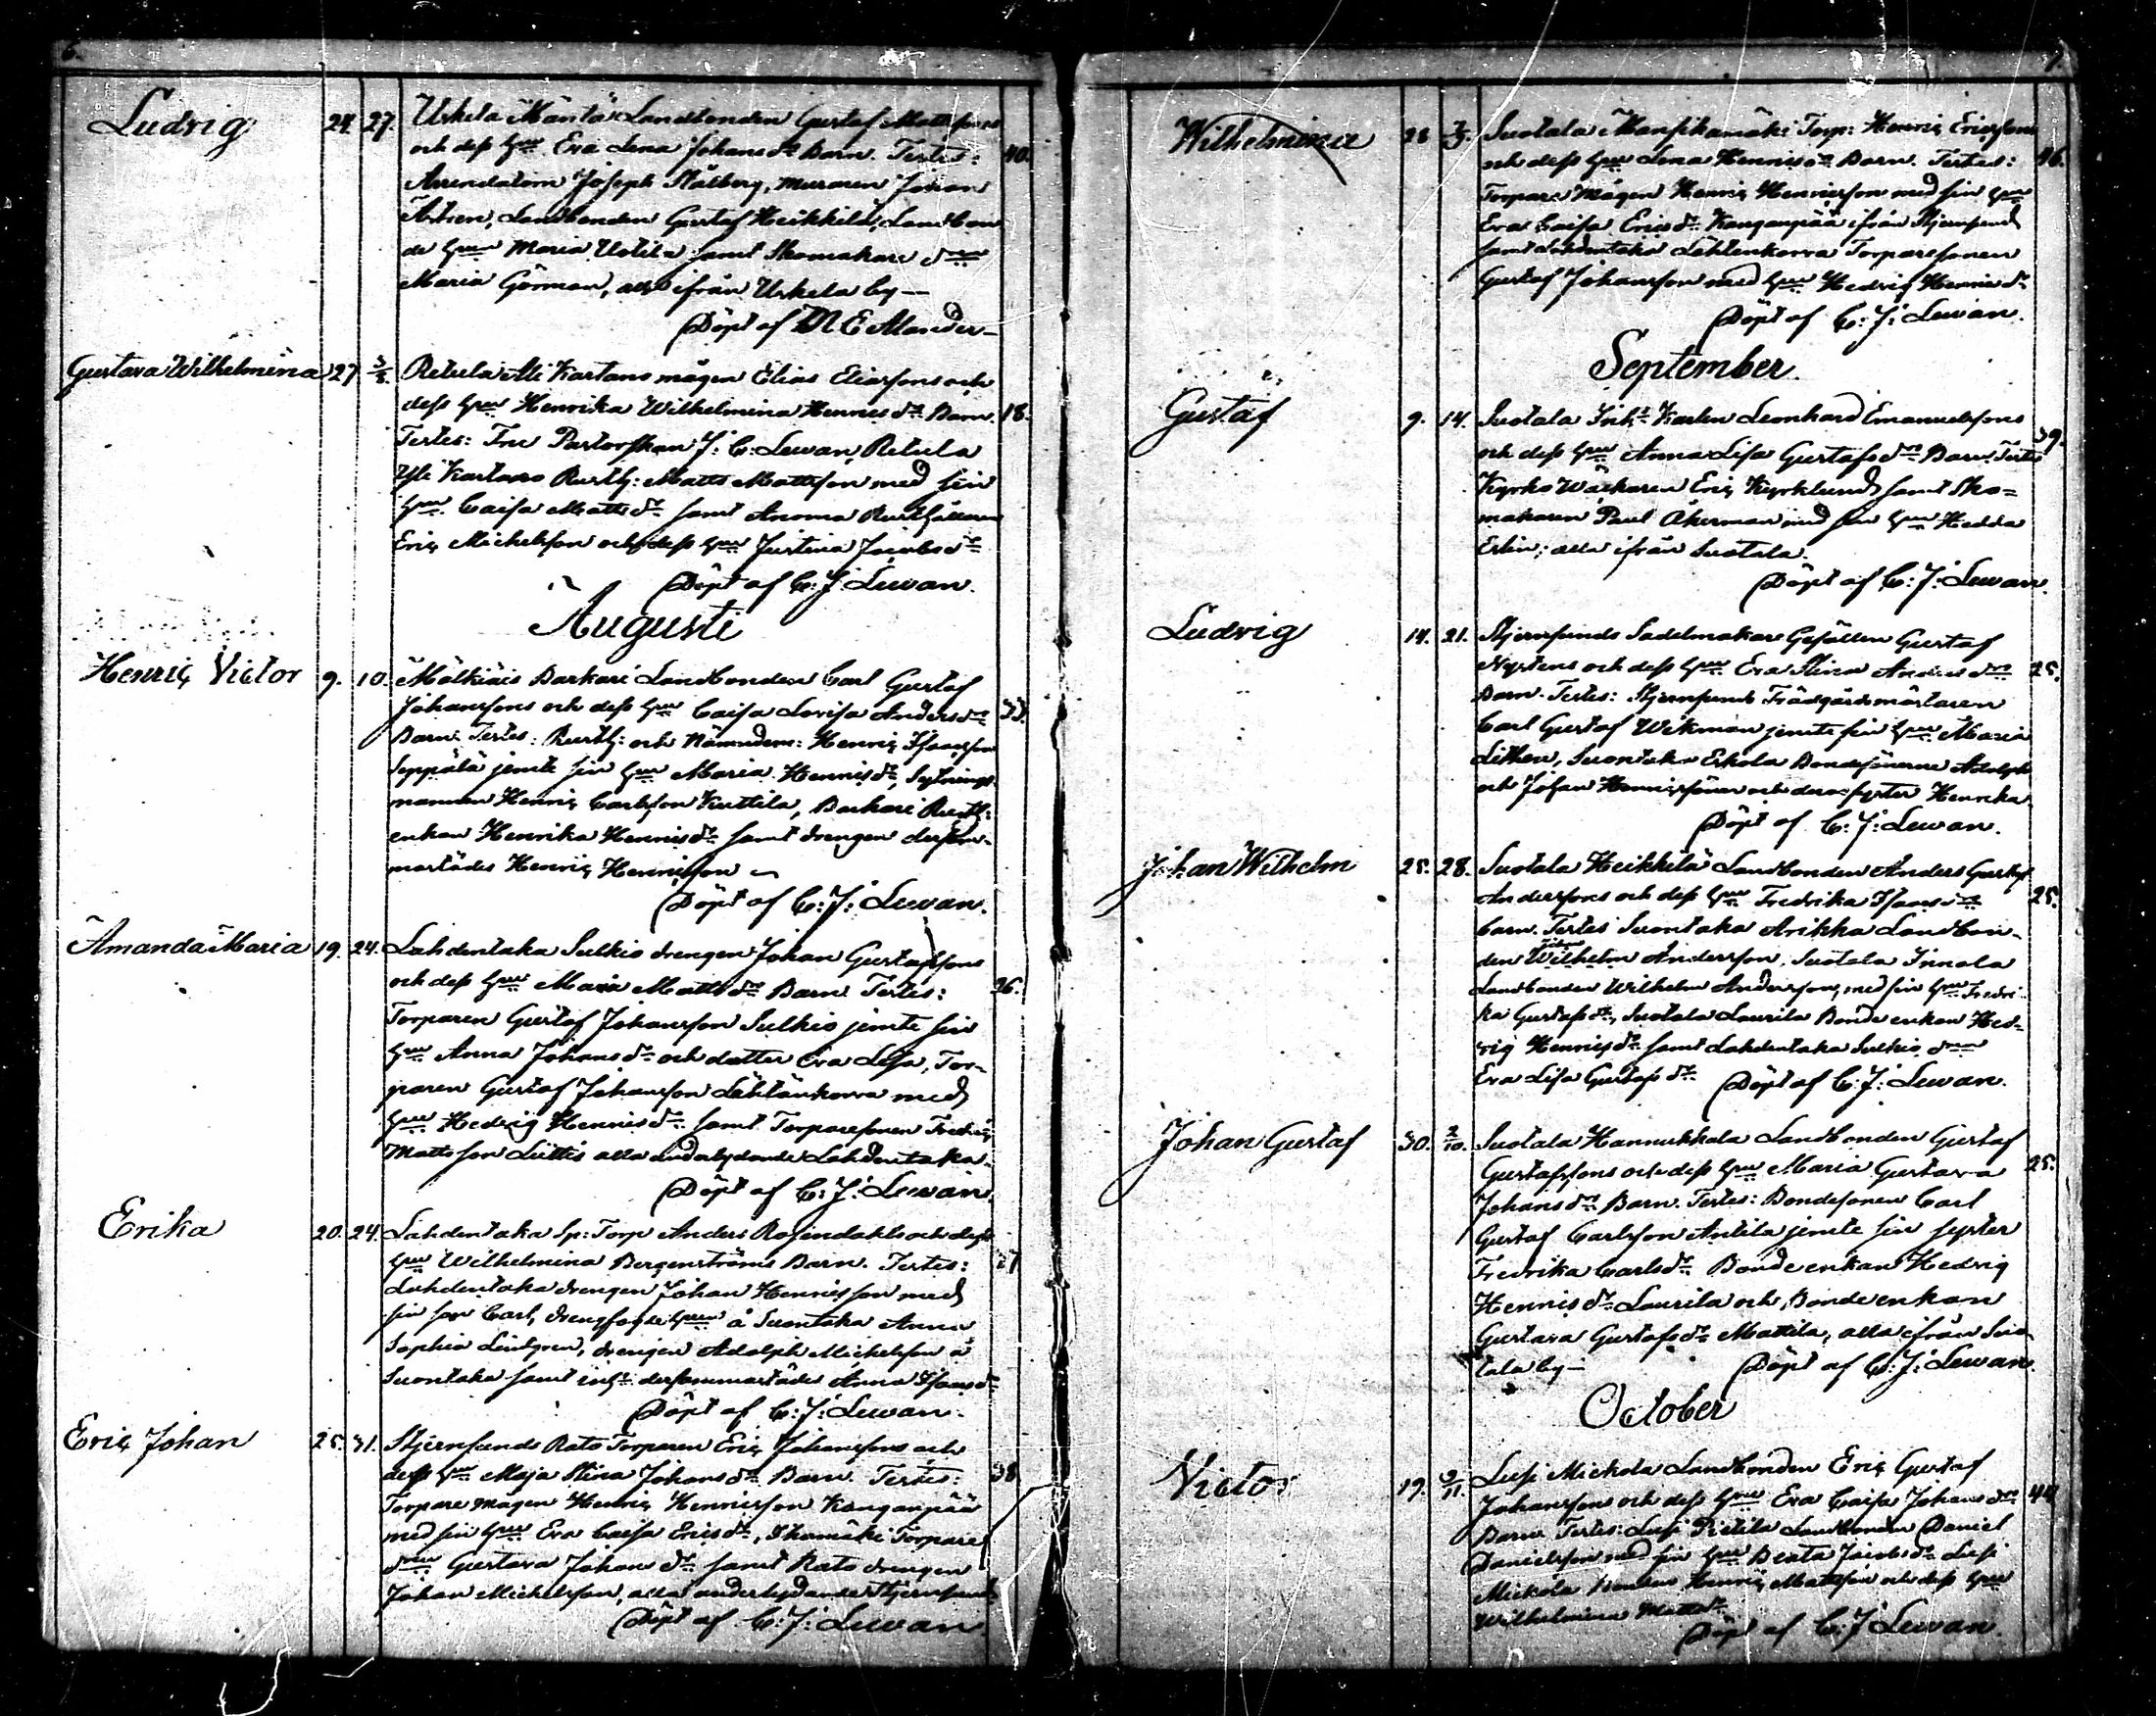 6.
Ludvig 24. 27. Urkela Mäntä Landbonden Gustaf Mattssons
och dess hru Eva Lena Johansdr Barn. Testes: 40.
Arrendatorn Joseph Stålberg, muraren Johan
Landbonden Gustaf Heikkilä, Landbon
de hrun Maria Uotila samt Skomakare drn
Maria Görman, alla ifrån Urkela by—
Döpt af M E Alander—
Gustava Wilhelmina 27 3/8. Retula Ali Kartano mågen Elias Eliassons och
dess hru Henrika Wilhelmina Henricsdr Barn. 18.
Testes: Fru Pastorskan J. C. Lewan, Retula
Yli Kartano Rusth: Matts Mattsson med sin
hru Caisa Mattsdr samt Anoma Rusthållaren
Eric Michelsson och dess hru Justina Jacobsdr
Döpt af C: J: Lewan.
Augusti
Henric Victor 9. 10. Mälkiäis Barkari Landbonden Carl Gustaf
Johanssons och dess hru Caisa Lovisa Andersdr 33.
Barn. Testes: Rusth: och Nämndem: Henric Isaacsson
Seppälä jemte sin hru Maria Henricsdr, Sytnings
mannen Henric Carlsson Kuttila, Barkari Rusth:
enkan Henrika Henricsdr samt drengen dersam-
mastädes Henric Henricsson
Döpt af C: J: Lewan.
Amanda Maria 19. 24. Lahdentaka Sulkio drengen Johan Gustafssons
och dess hru Maria Mattsdr Barn. Testes: 26.
Torparen Gustaf Johansson Sulkio jemte sin
hru Anna Johansdr och dotter Eva Lisa, Tor-
paren Gustaf Johansson Lähtänkorva med
hru Hedvig Henricsdr samt Torparesonen Fredric
Mattsson Luttis alla underlydande Lahdentaka.
Döpt af C: J: Lewan.
Erika 20. 24. Lahdentaka Sp: Torp Anders Rosendahls och dess
hru Wilhelmina Bergenströms Barn. Testes: 27
Lahdentaka drengen Johan Henricsson med
sin son Carl, drengfogde hrun å Suontaka Anna
Sophia Lindgren, drengen Adolph Michelsson å
Suontaka samt inhs dersammastädes Anna Isaacsdr
Döpt af C: J: Lewan.
Eric Johan 25. 31. Stjernsunds Rato Torparen Eric Johanssons och
dess hru Maja Stina Johansdr Barn. Testes: 38
Torpare mågen Henric Henricsson Kanganpää
med sin hru Eva Caisa Ericsdr, Torpare
drn Gustava Johansdr samt Rato drengen
Johan Michelsson, alla underlydande Stjernsund
Döpt af C: J: Lewan.
7.
Wilhelmina 28 Suotala Mansikamäki Torp: Henric Ericssons
och dess hru Lena Henricsdr Barn. Testes: 46.
Torpare Mågen Henric Henricsson med sin hru
Eva Caisa Ericsdr Kanganpää ifrån Stjernsund
samt Lahdentaka Lähtenkorva Torparesonen
Gustaf Johansson med hru Hedvig Henricsdr
Döpt af C: J: Lewan.
September.
Gustaf 9. 14. Suotala Inhs Karlen Leonhard Emanuelssons
och dess hru Anna Lisa Gustafsdr Barn. Testes 39.
Kyrko Wäktaren Eric Kyrklund samt Sko=
makaren Paul Åkerman med sin hru Hedda
Erlin; alla ifrån Suotala.
Döpt af C: J: Lewan.
Ludvig 14. 21. Stjernsunds Sadelmakare Gesällen Gustaf
Nystens och dess hru Eva Stina Andersdr 25.
Barn. Testes: Stjernsunds Trädgårdsmästaren
Carl Gustaf Wikman jemte sin hru Maria
Lithen, Suontaka Eskola Bondesönerne Adolph
och Johan Henricssöner och deras syster Henrika.
Döpt af C: J: Lewan.
Johan Wilhelm 25. 28. Suotala Heikkilä Landbonden Anders Gustaf
Anderssons och dess hru Fredrika Isaacsdr 25.
barn. Testes Suontaka Arikka Landbon-
den Johan Wilhelm Andersson, Suotala Innala
Landbonden Wilhelm Andersson, med sin hru Fredri-
ka Gustafsdr, Suotala Laurila Bonde enkan Hed-
vig Henricsdr samt Lahdentaka Sulkio drn
Eva Lisa Gustafsdr. Döpt af C: J: Lewan.
Johan Gustaf 30. 2/10. Suotala Hannukkala Landbonden Gustaf
Gustafssons och dess hru Maria Gustava 25.
Johansdr Barn. Testes: Bondesonen Carl
Gustaf Carlsson Antila jemte sin syster
Fredrika Carlsdr Bonde enkan Hedvig
Henricsdr Laurila och Bonde enkan
Gustava Gustafsdr Mattila, alla ifrån Suo-
tala by— Döpt af C: J: Lewan.
October
Victor 19. 2/11. Luisi Mickola Landbonden Eric Gustaf
Johanssons och dess hru Eva Caisa Johansdr 44
Barn. Testes: Pietila Landbonden Daniel
Danielsson med sin hru Beata Jacobsdr
Mickola Henric Mattsson och dess hru
Wilhelmina Mattsdr
Döpt af C: J: Lewan.